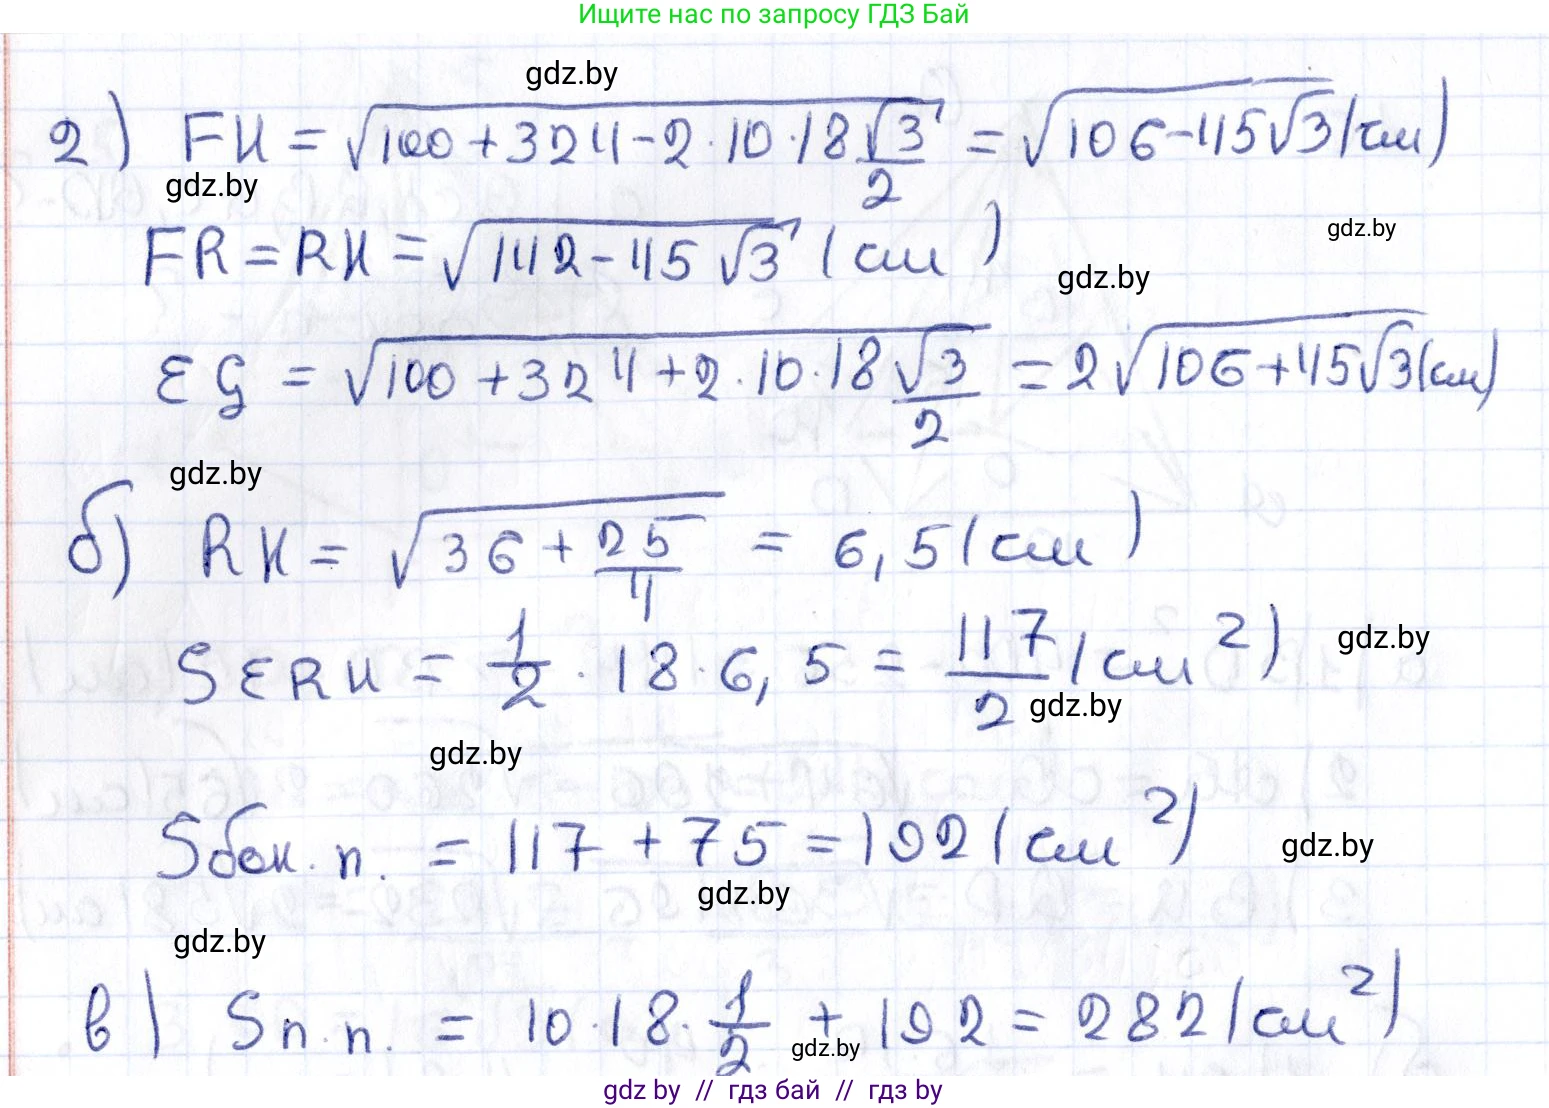 Ищите нас по запросу ГДЗ Бай
gdz.by
2) FK = √(100 + 324 - 2·10·18 √3/2) = √(106 - 45√3) (см)
gdz.by
gdz.by
FR = RK = √(142 - 45√3) (см)
gdz.by
EG = √(100 + 324 + 2·10·18 √3/2) = 2√(106 + 45√3) (см)
gdz.by
б) RK = √(36 + 25/4) = 6,5 (см)
S ERK = 1/2 · 18 · 6,5 = 117/2 (см²)
gdz.by
gdz.by
gdz.by
Sбок.п. = 117 + 75 = 192 (см²)
gdz.by
gdz.by
gdz.by
в) Sп.п. = 10·18·1/2 + 192 = 282 (см²)
gdz.by
gdz by // гдз бай // гдз by